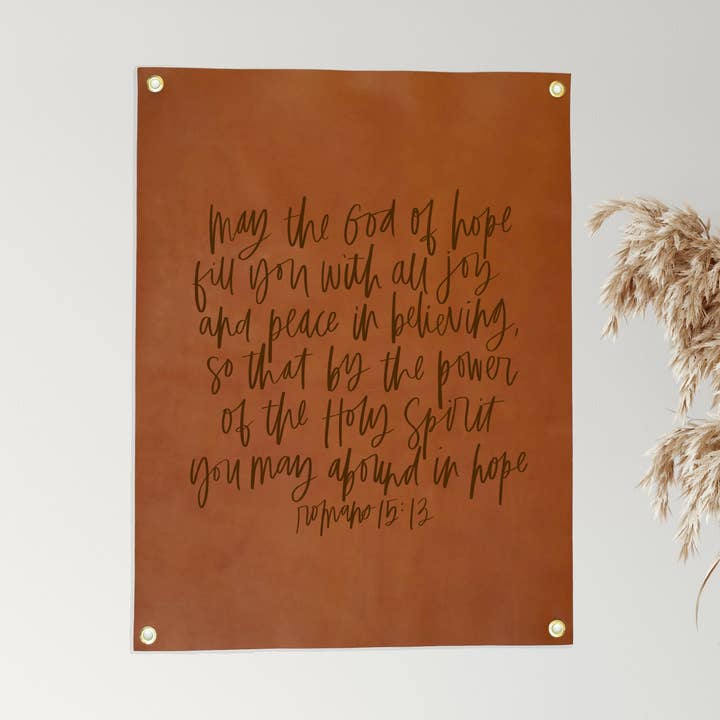 may the God of hope
fill you with all joy
and peace in believing,
so that by the power
of the Holy Spirit
you may abound in hope
romans 15:13